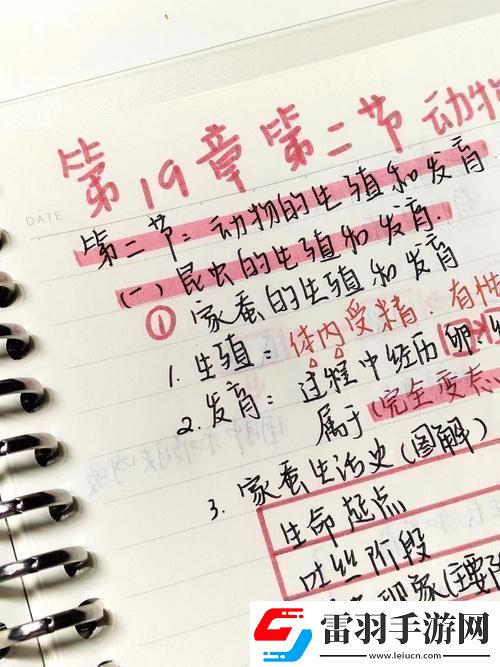 第19章第二节 动物
DATE
第二节：动物的生殖和发育.
(一) 昆虫的生殖和发育.
① 家蚕的生殖和发育
1. 生殖：体内受精. 有性
2. 发育：过程中经历卵.
属于(完全变态
3. 家蚕生活史(图解)
生命起点
吐丝阶段
雷羽手游网
www.leiucn.com